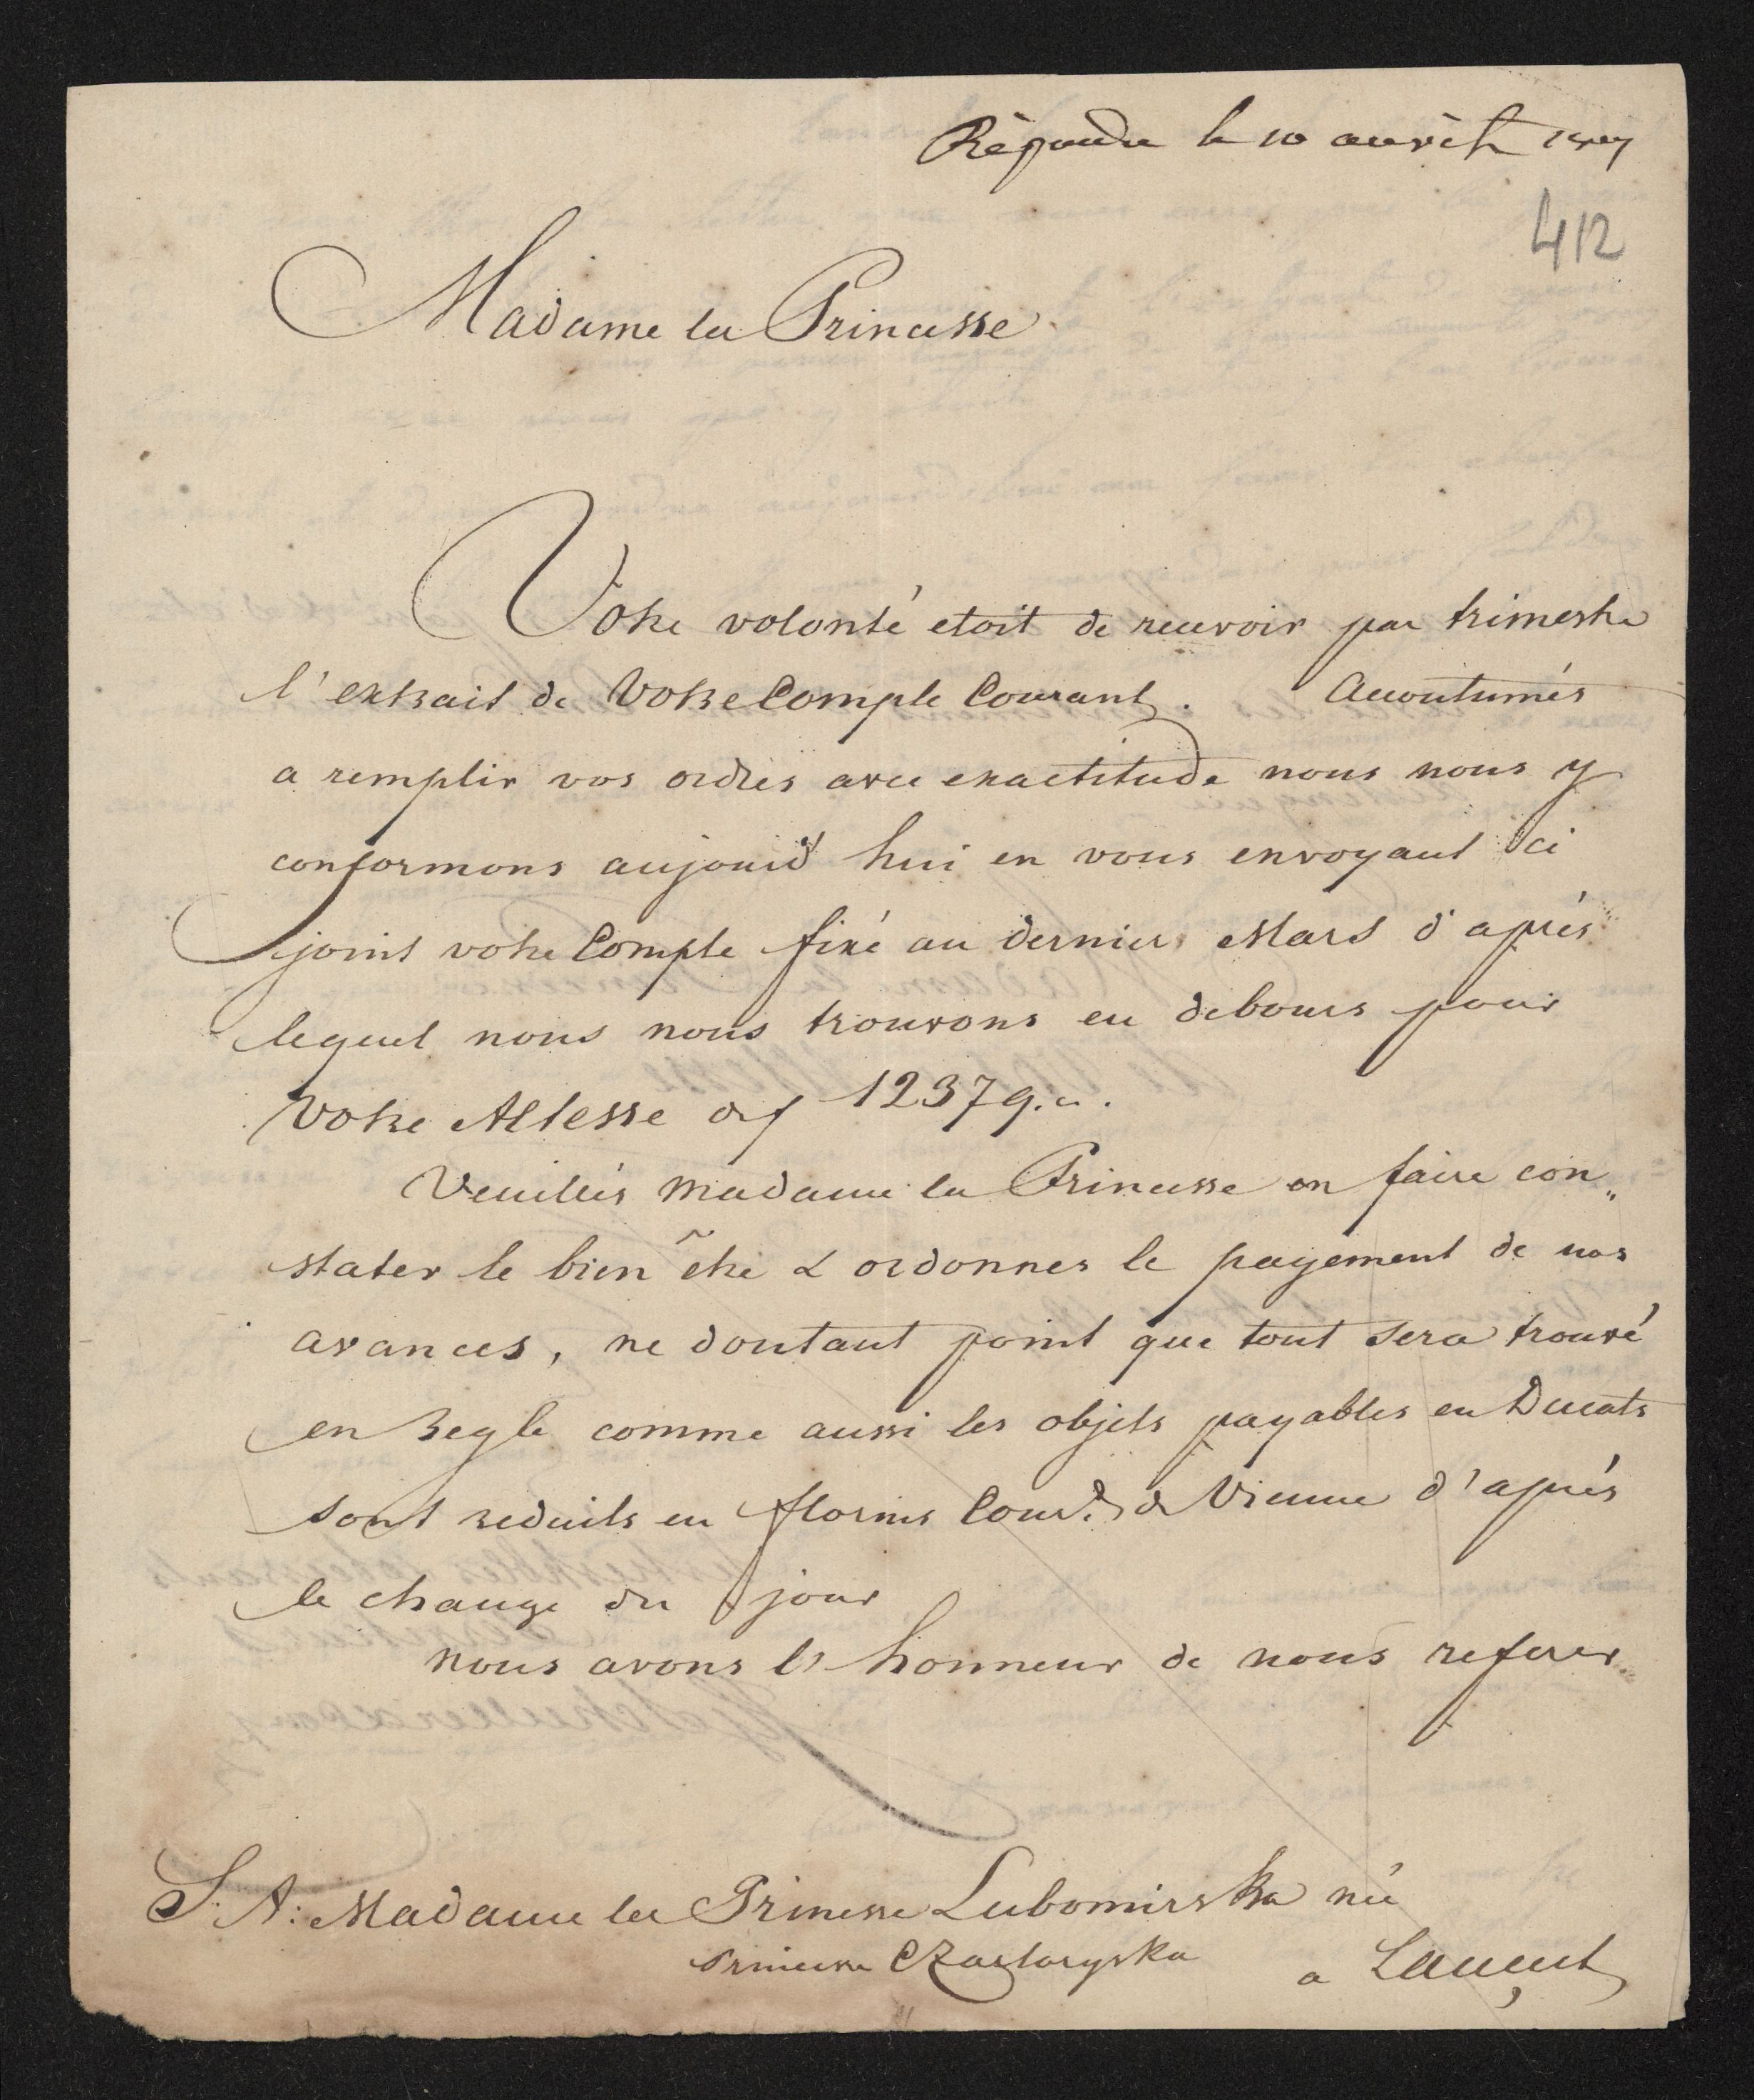 Répondu le 10 avril 1807
412
Madame la Princesse
Votre volonté etoit de recevoir par trimestre
l'extrait de Votre Compte Courant. Accoutumés
a remplir vos ordres avec exactitude nous nous y
conformons aujourd'hui en vous envoyant ici
joint votre Compte fixé au dernier Mars d'après
lequel nous nous trouvons en debours pour
Votre Altesse de f 12379.
Veuillés Madame la Princesse en faire con„
stater le bien être & ordonner le payement de nos
avances, ne doutant point que tout sera trouvé
en regle comme aussi les objets payables en Ducats
sont reduits en florins Cour.t de Vienne d'après
le change du jour
nous avons l'honneur de nous referer
S. A: Madame la Princesse Lubomirska née
Princesse Czartoryska a Lançut